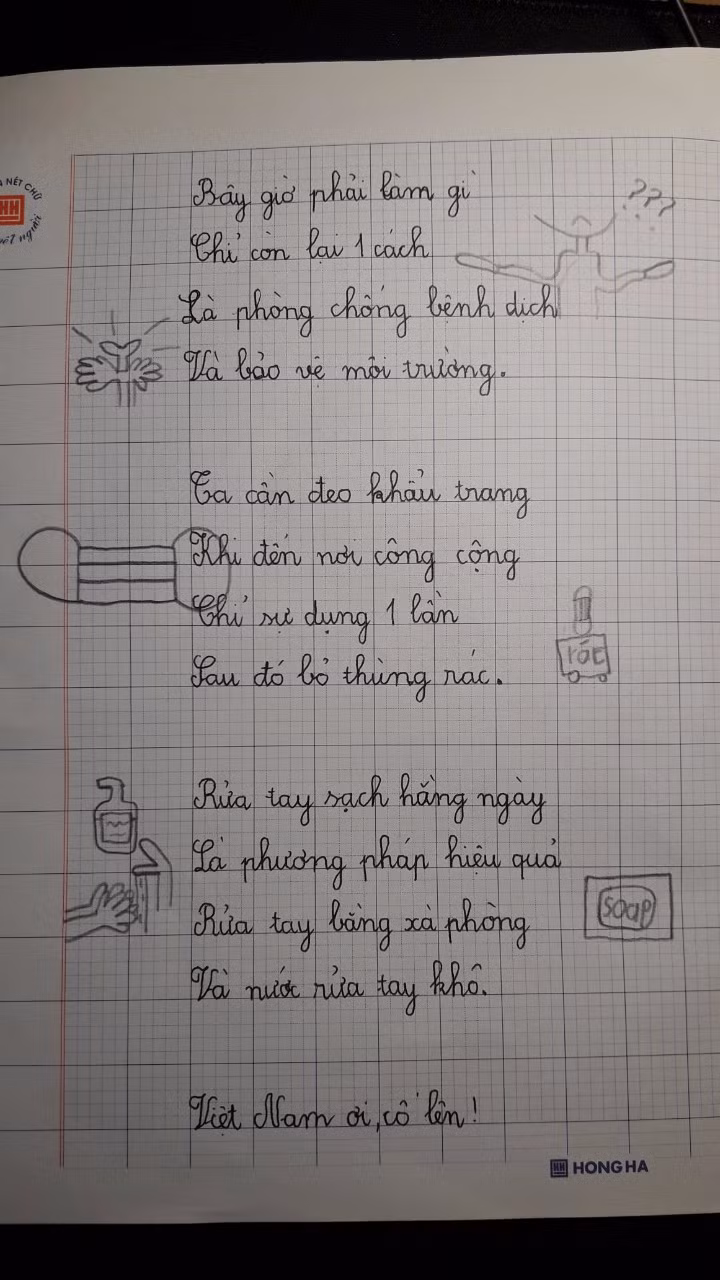 NÉT CHỮ
HH
NẾT NGƯỜI
Bây giờ phải làm gì
???
Chỉ còn lại 1 cách
Là phòng chống bệnh dịch
Và bảo vệ môi trường.
Ta cần đeo khẩu trang
Khi đến nơi công cộng
Chỉ sự dụng 1 lần
rác
Sau đó bỏ thùng rác.
Rửa tay sạch hằng ngày
Là phương pháp hiệu quả
SOAP
Rửa tay bằng xà phòng
Và nước rửa tay khô.
Việt Nam ơi, cố lên!
HH HONG HA